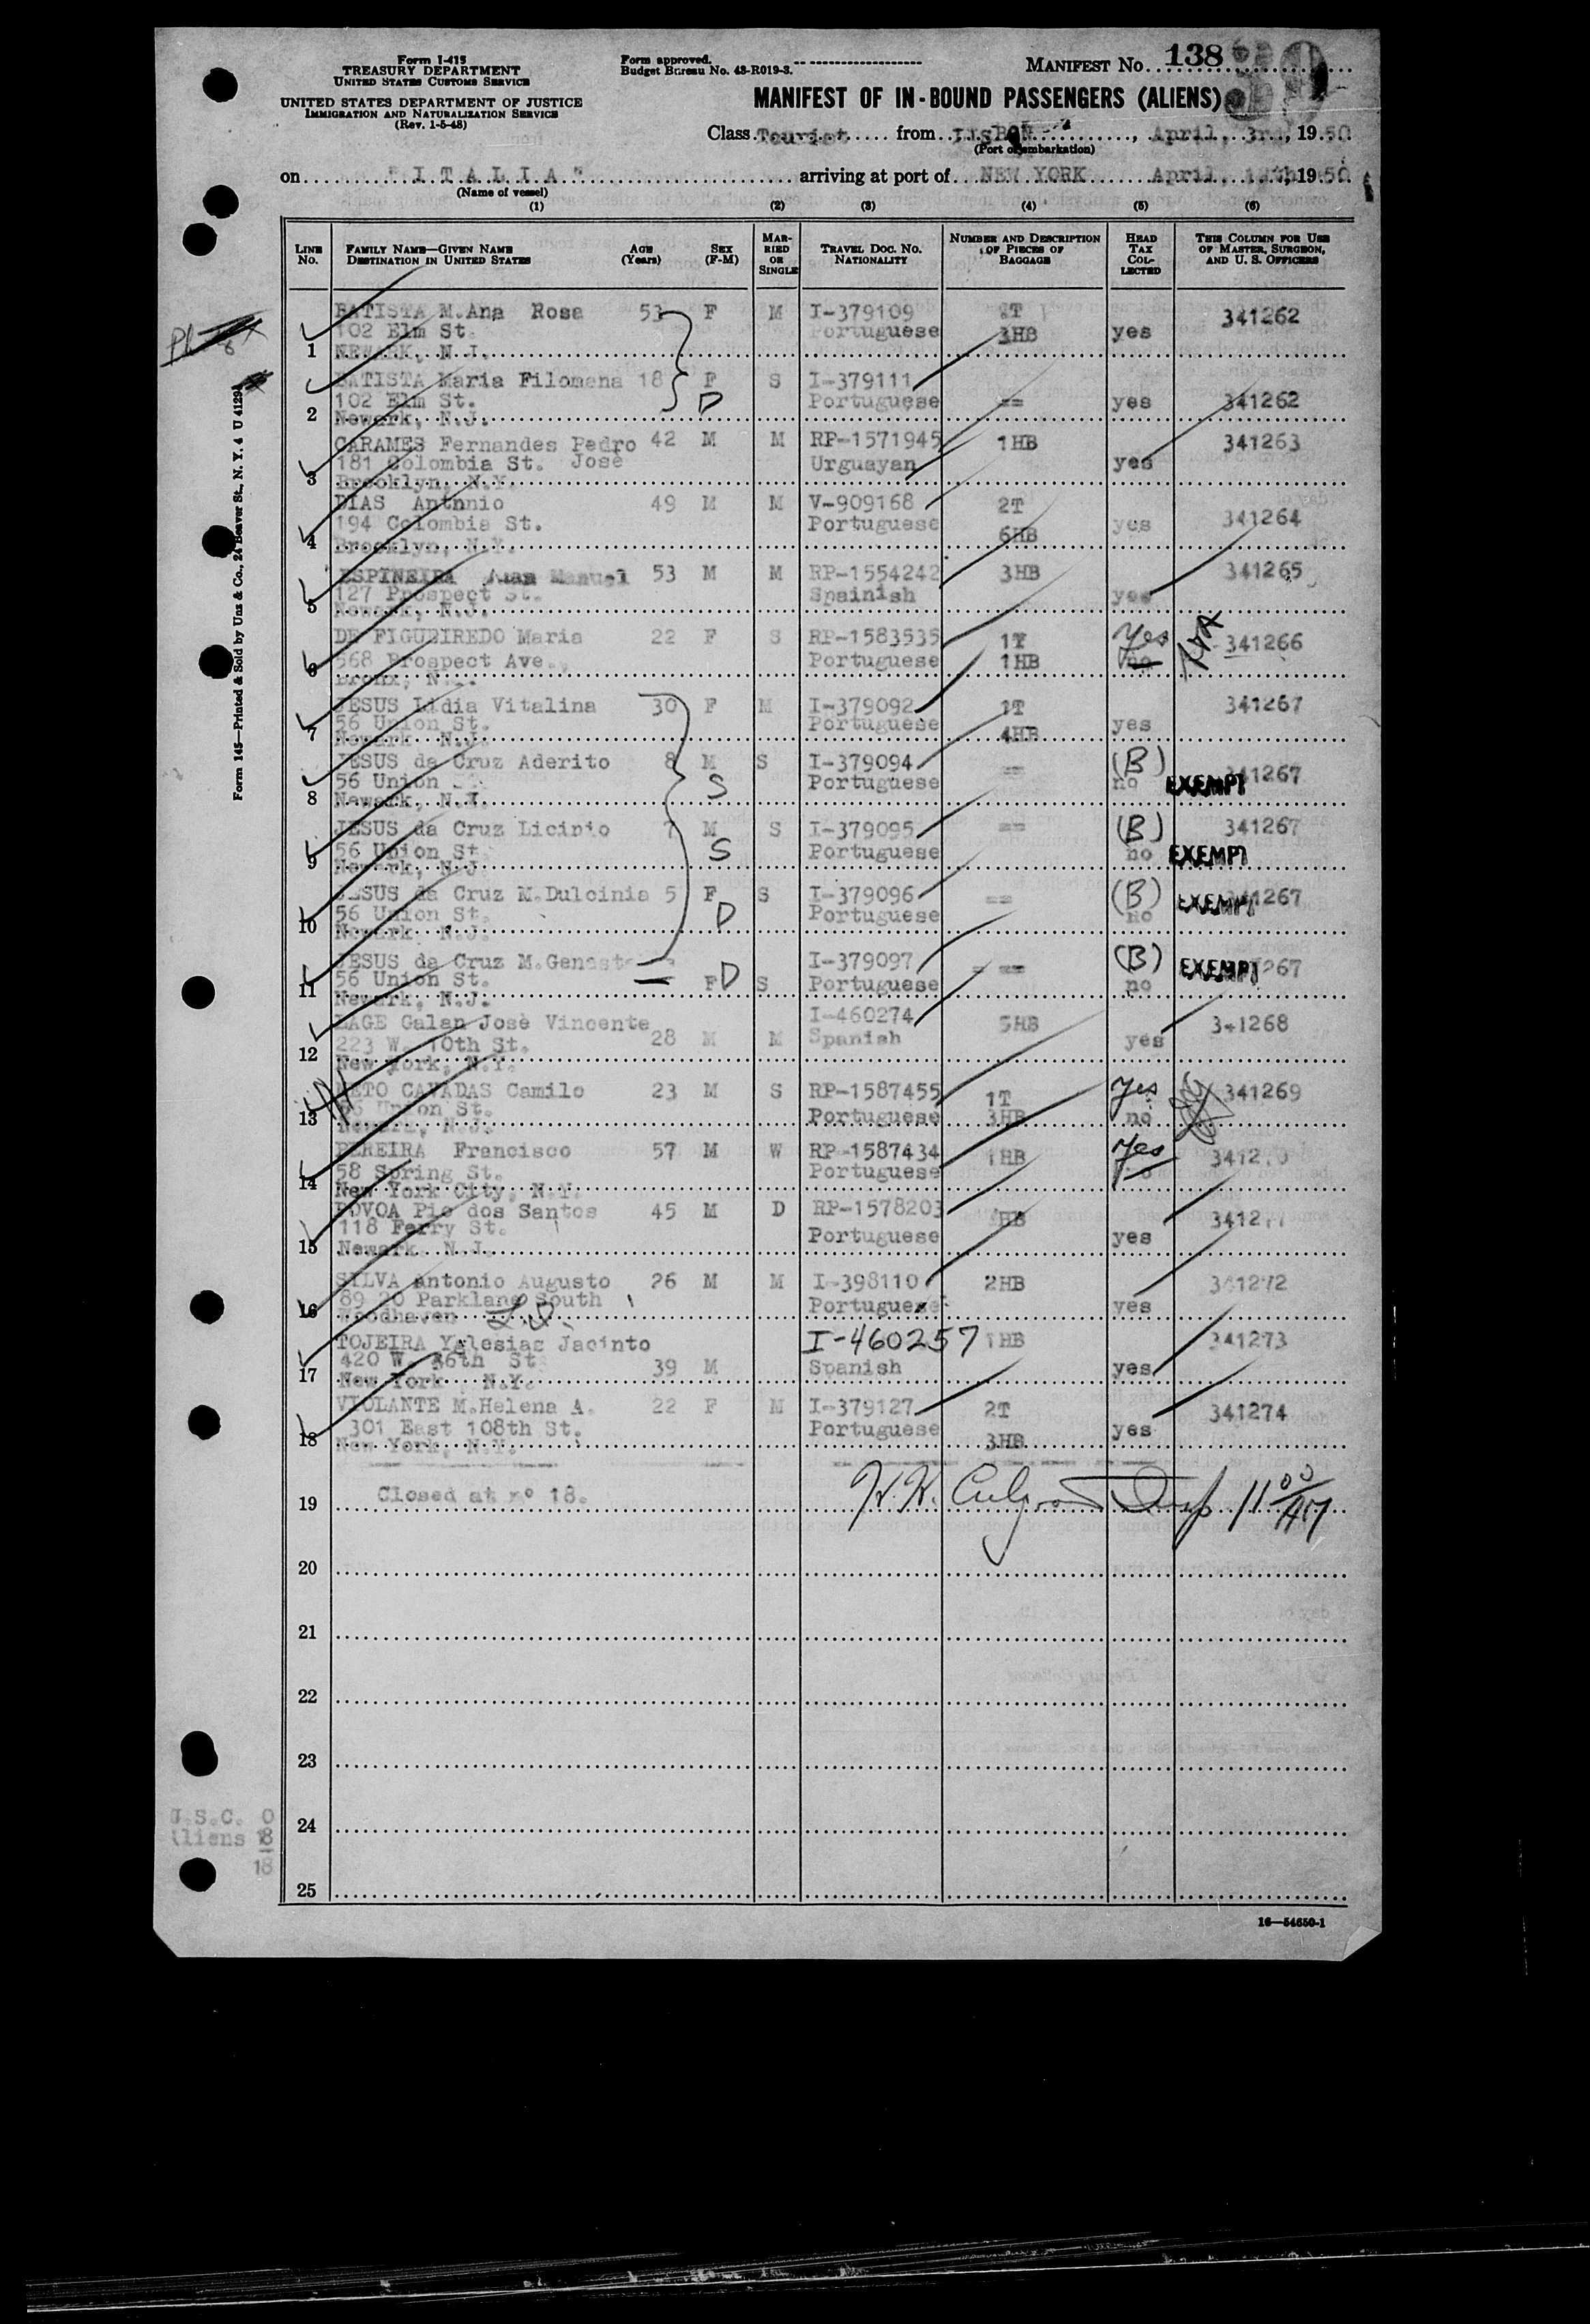 Form I-415
TREASURY DEPARTMENT
UNITED STATES CUSTOMS SERVICE
UNITED STATES DEPARTMENT OF JUSTICE
IMMIGRATION AND NATURALIZATION SERVICE
(Rev. 1-5-48)
Form approved.
Budget Bureau No. 43-R019-3.
MANIFEST No. 138
MANIFEST OF IN-BOUND PASSENGERS (ALIENS)
Class Tourist from LISBON, April, 3rd, 1950
(Port of embarkation)
on "ITALIA" arriving at port of NEW YORK April, 1950
(Name of vessel)
(1) (2) (3) (4) (5) (6)
LINE No. FAMILY NAME—GIVEN NAME DESTINATION IN UNITED STATES AGE (Years) SEX (F-M) MARRIED OR SINGLE TRAVEL DOC. NO. NATIONALITY NUMBER AND DESCRIPTION OF PIECES OF BAGGAGE HEAD TAX COLLECTED THIS COLUMN FOR USE OF MASTER, SURGEON, AND U. S. OFFICERS
BATISTA M.Ana Rosa 53 F M I-379109 1T 341262
102 Elm St. Portuguese 3HB yes
1 NEWARK, N.J.
BATISTA Maria Filomena 18 F S I-379111
102 Elm St. D Portuguese == yes 341262
2 Newark, N.J.
CARAMES Fernandes Pedro 42 M M RP-1571945 1HB 341263
181 Colombia St. Josè Urguayan yes
3 Brooklyn, N.Y.
DIAS Antnnio 49 M M V-909168 2T
194 Colombia St. Portuguese yes 341264
4 Brooklyn, N.Y. 6HB
ESPINEIRA Juan Manuel 53 M M RP-1554242 3HB 341265
127 Prospect St. Spainish yes
5 Newark, N.J.
DE FIGUEIREDO Maria 22 F S RP-1583535 1T Yes 341266
568 Prospect Ave. Portuguese 1HB no
6 Bronx, N.Y.
JESUS Lidia Vitalina 30 F M I-379092 1T 341267
56 Union St. Portuguese yes
7 Newark N.J. 4HB
JESUS da Cruz Aderito 8 M S I-379094 == (B) 341267
56 Union S Portuguese no EXEMPT
8 Newark, N.J.
JESUS da Cruz Licinio 7 M S I-379095 == (B) 341267
56 Union St. S Portuguese no EXEMPT
9 Newark, N.J
JESUS da Cruz M.Dulcinia 5 F S I-379096 == (B) EXEMPT 341267
56 Union St. D Portuguese no
10 Newark N.J.
JESUS da Cruz M.Genost I-379097 == (B) EXEMPT 341267
56 Union St. F D S Portuguese no
11 Newark, N.J.
LAGE Galan Josè Vincente I-460274 5HB 341268
223 W. 10th St. 28 M M Spanish yes
12 New York, N.Y.
NETO CAVADAS Camilo 23 M S RP-1587455 1T Yes 341269
56 Union St. Portuguese 3HB no
13 Newark, N.J.
PEREIRA Francisco 57 M W RP-1587434 1HB Yes 341270
58 Spring St. Portuguese no
14 New York City, N.Y.
POVOA Pio dos Santos 45 M D RP-1578203 HB 341271
118 Ferry St. Portuguese yes
15 Newark N.J.
SILVA Antonio Augusto 26 M M I-398110 2HB 341272
89 20 Parklane South Portuguese yes
16 Woodhaven L.I.
TOJEIRA Yglesias Jacinto I-460257 1HB 341273
420 W. 36th St 39 M Spanish yes
17 New York N.Y.
VIOLANTE M.Helena A. 22 F M I-379127 2T 341274
301 East 108th St. Portuguese yes
18 New York, N.Y. 3HB
19 Closed at nº 18.
20
21
22
23
24
25
U.S.C. 0
Aliens 18
18
Form 145—Printed & Sold by Unz & Co., 24 Beaver St., N. Y. 4 U 41294
16—54650-1